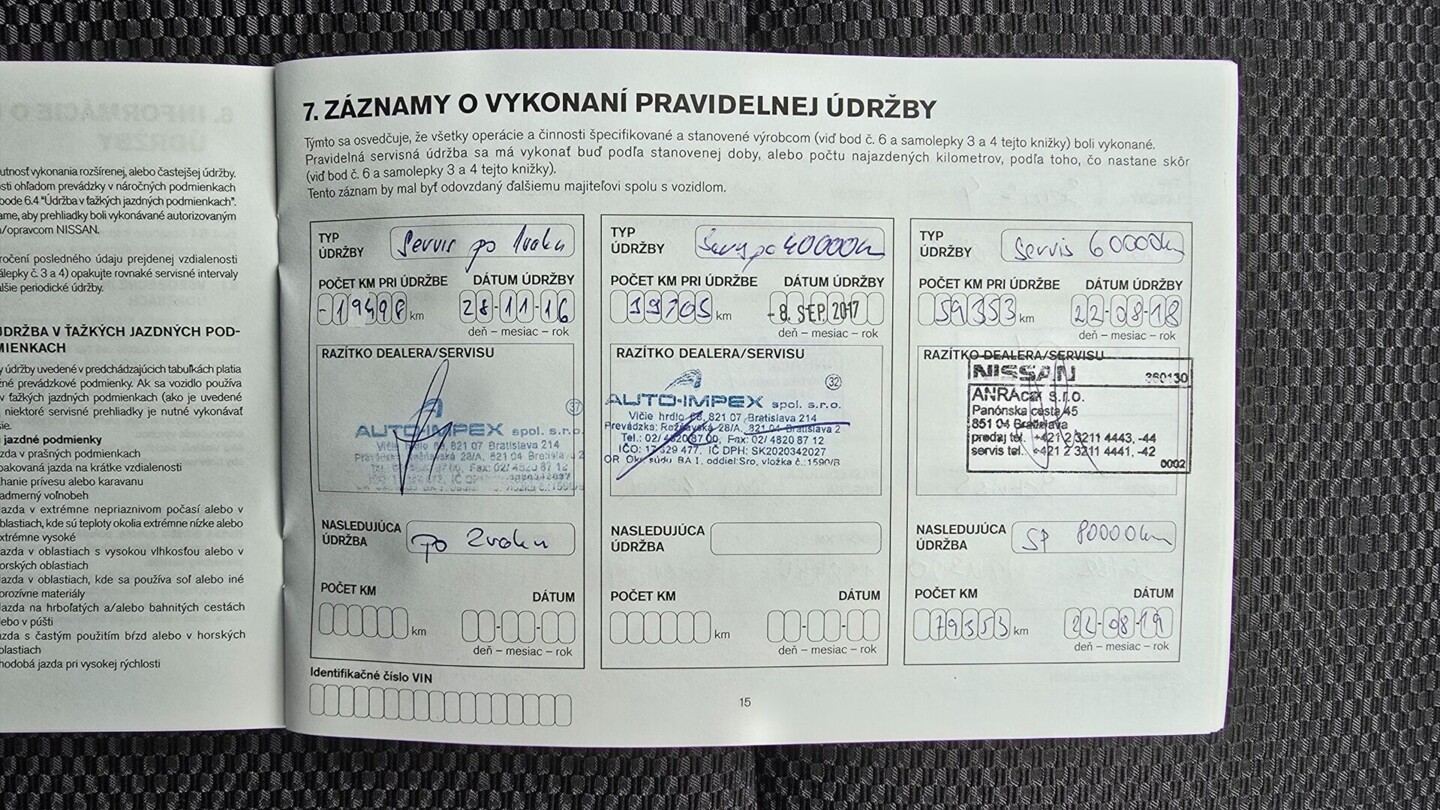 utnosť vykonania rozšírenej, alebo častejšej údržby.
sti ohľadom prevádzky v náročných podmienkach
bode 6.4 "Údržba v ťažkých jazdných podmienkach".
ame, aby prehliadky boli vykonávané autorizovaným
/opravcom NISSAN.
ročení posledného údaju prejdenej vzdialenosti
lepky č. 3 a 4) opakujte rovnaké servisné intervaly
lšie periodické údržby.
DRŽBA V ŤAŽKÝCH JAZDNÝCH POD-
MIENKACH
y údržby uvedené v predchádzajúcich tabuľkách platia
žné prevádzkové podmienky. Ak sa vozidlo používa
v ťažkých jazdných podmienkach (ako je uvedené
niektoré servisné prehliadky je nutné vykonávať
šie.
jazdné podmienky
zda v prašných podmienkach
pakovaná jazda na krátke vzdialenosti
ahanie prívesu alebo karavanu
admerný voľnobeh
azda v extrémne nepriaznivom počasí alebo v
blastiach, kde sú teploty okolia extrémne nízke alebo
xtrémne vysoké
azda v oblastiach s vysokou vlhkosťou alebo v
orských oblastiach
azda v oblastiach, kde sa používa soľ alebo iné
orozívne materiály
azda na hrboľatých a/alebo bahnitých cestách
ebo v púšti
azda s častým použitím bŕzd alebo v horských
blastiach
hodobá jazda pri vysokej rýchlosti
7. ZÁZNAMY O VYKONANÍ PRAVIDELNEJ ÚDRŽBY
Týmto sa osvedčuje, že všetky operácie a činnosti špecifikované a stanovené výrobcom (viď bod č. 6 a samolepky 3 a 4 tejto knižky) boli vykonané.
Pravidelná servisná údržba sa má vykonať buď podľa stanovenej doby, alebo počtu najazdených kilometrov, podľa toho, čo nastane skôr
(viď bod č. 6 a samolepky 3 a 4 tejto knižky).
Tento záznam by mal byť odovzdaný ďalšiemu majiteľovi spolu s vozidlom.
TYP ÚDRŽBY Servis po 1 roku
POČET KM PRI ÚDRŽBE DÁTUM ÚDRŽBY
-19498 km 28-11-16
deň – mesiac – rok
RAZÍTKO DEALERA/SERVISU
37
AUTO-IMPEX spol. s r.o.
Vlčie hrdlo 68, 821 07 Bratislava 214
28/A, 821 04 Bratislava 2
Fax: 02/ 4820 87 12
NASLEDUJÚCA ÚDRŽBA po 2 roku
POČET KM DÁTUM
km
deň – mesiac – rok
Identifikačné číslo VIN
TYP ÚDRŽBY po 40000km
POČET KM PRI ÚDRŽBE DÁTUM ÚDRŽBY
39705 km - 8. SEP. 2017
deň – mesiac – rok
RAZÍTKO DEALERA/SERVISU
32
AUTO-IMPEX spol. s r.o.
Vlčie hrdlo 68, 821 07 Bratislava 214
Prevádzka: Rožňavská 28/A, 821 04 Bratislava 2
Tel.: 02/ 4820 87 00, Fax: 02/ 4820 87 12
IČO: 17 329 477, IČ DPH: SK2020342027
OR Okr. súdu BA I, oddiel:Sro, vložka č.:1590/B
NASLEDUJÚCA ÚDRŽBA
POČET KM DÁTUM
km
deň – mesiac – rok
TYP ÚDRŽBY Servis 60000km
POČET KM PRI ÚDRŽBE DÁTUM ÚDRŽBY
59353 km 22-08-18
deň – mesiac – rok
RAZÍTKO DEALERA/SERVISU
NISSAN 360130
ANRAcar s.r.o.
Panónska cesta 45
851 04 Bratislava
predaj tel. +421 2 3211 4443, -44
servis tel. +421 2 3211 4441, -42
0002
NASLEDUJÚCA ÚDRŽBA SP 80000km
POČET KM DÁTUM
79353 km 22-08-19
deň – mesiac – rok
15